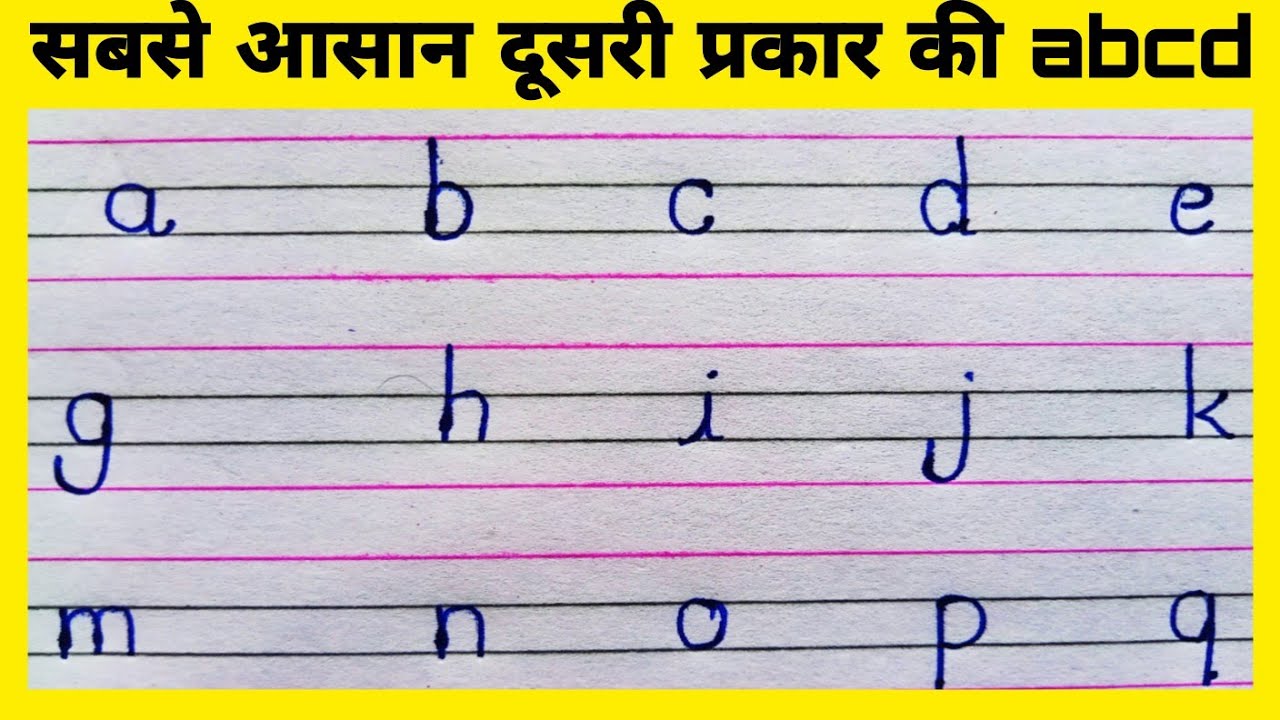 सबसे आसान दूसरी प्रकार की abcd
a b c d e
g h i j k
m n o p q